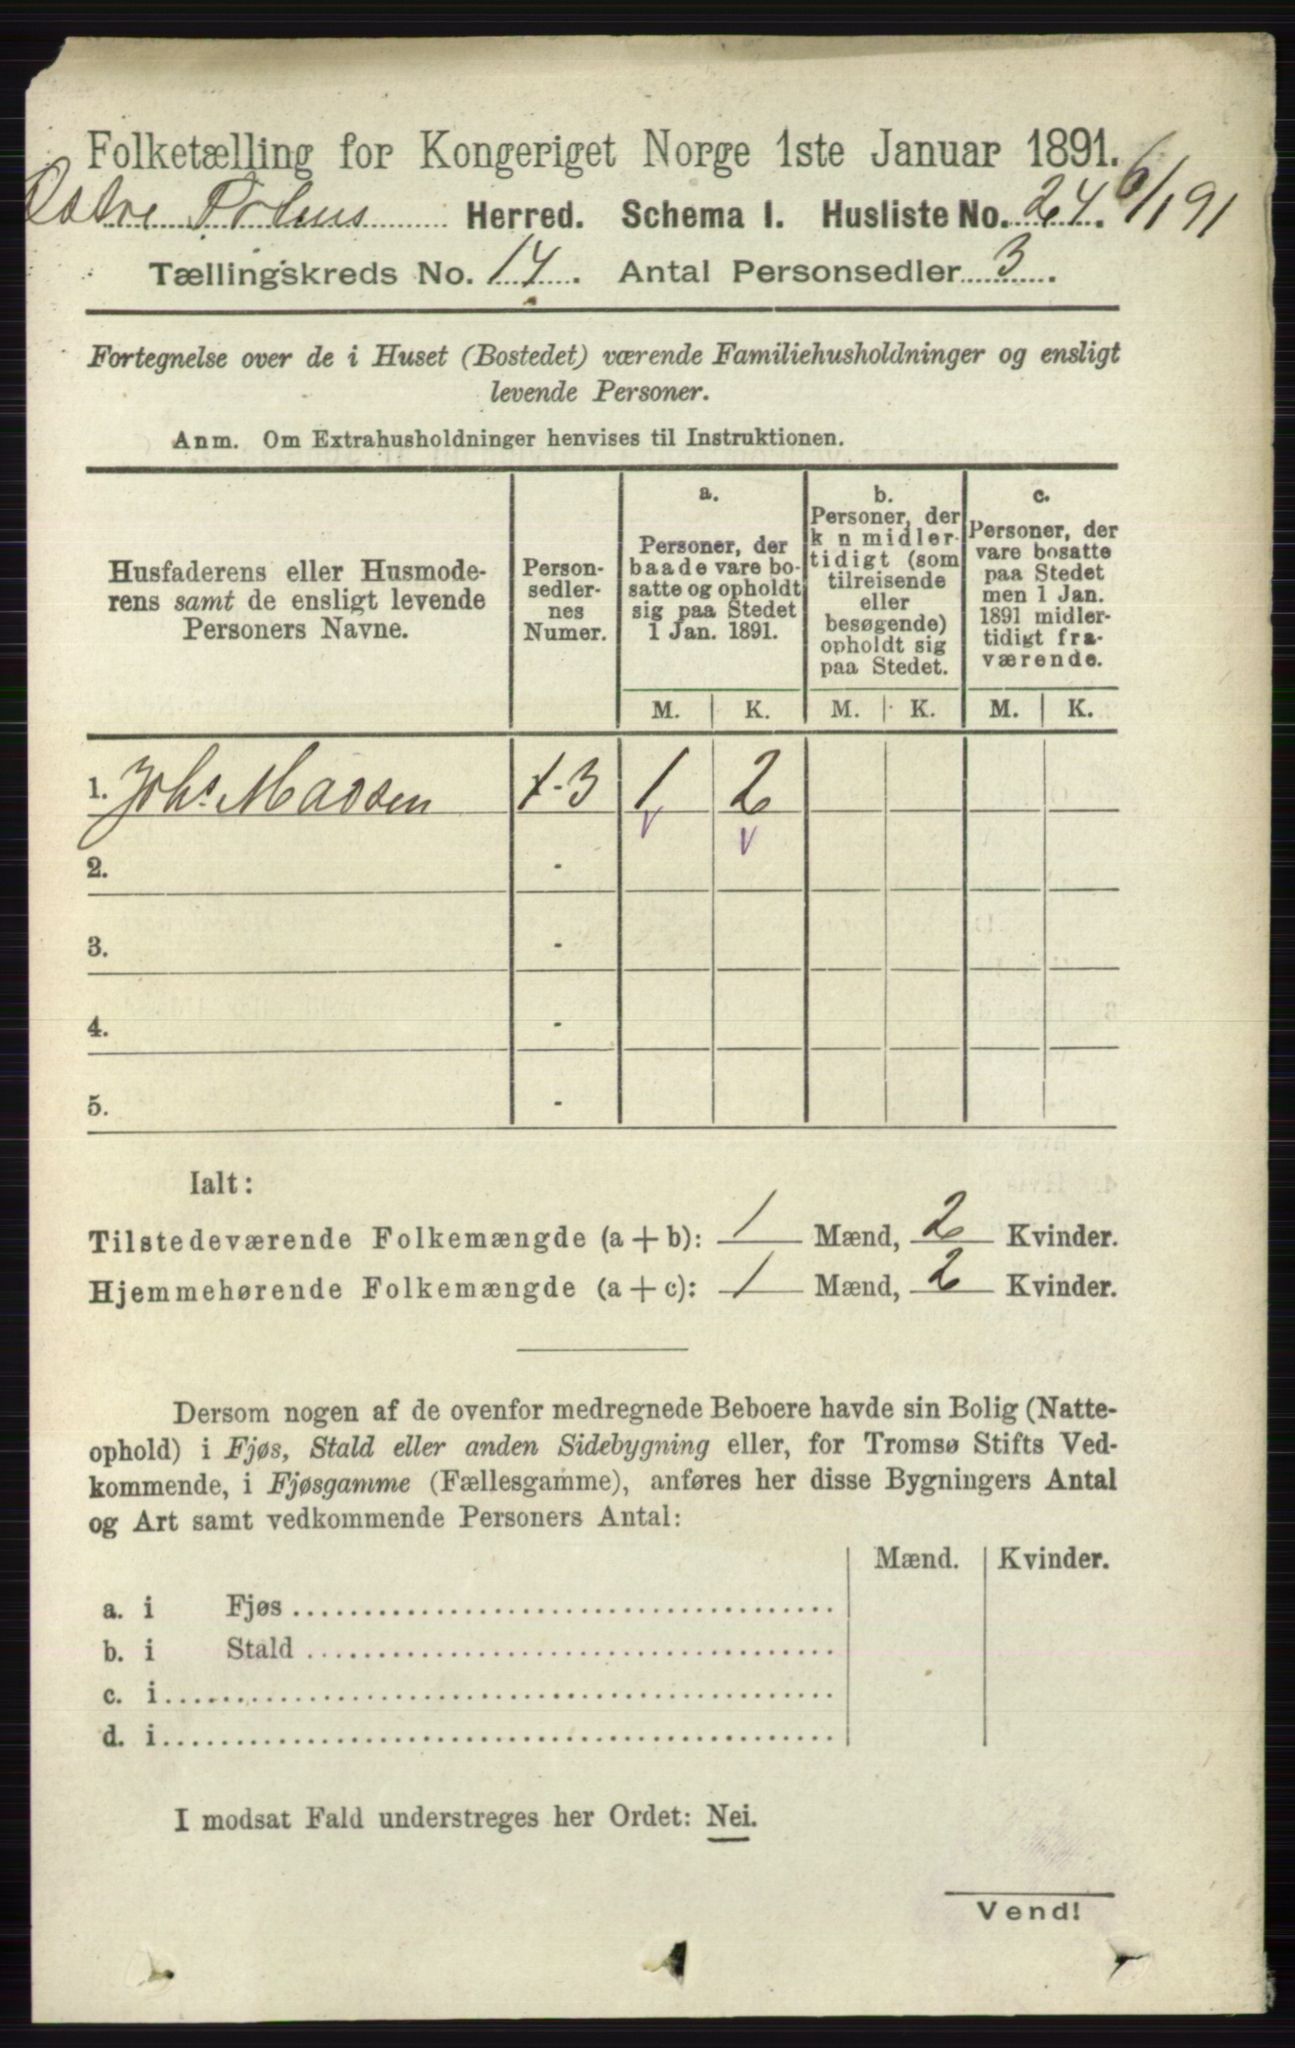 Folketælling for Kongeriget Norge 1ste Januar 1891.
Østre Herred. Schema I. Husliste No. 24. 6/1 91
Tællingskreds No. 14. Antal Personsedler 3.
Fortegnelse over de i Huset (Bostedet) værende Familiehusholdninger og ensligt
levende Personer.
Anm. Om Extrahusholdninger henvises til Instruktionen.
Husfaderens eller Husmode-
rens samt de ensligt levende
Personers Navne.
Person-
sedler-
nes
Numer.
a.
Personer, der
baade vare bo-
satte og opholdt
sig paa Stedet
1 Jan. 1891.
M. K.
b.
Personer, der
k n midler-
tidigt (som
tilreisende
eller
besøgende)
opholdt sig
paa Stedet.
M. K.
c.
Personer, der
vare bosatte
paa Stedet
men 1 Jan.
1891 midler-
tidigt fra-
værende.
M. K.
1. Johs Madsen 1-3 1 2
2. -
3. -
4. -
5. -
Ialt:
Tilstedeværende Folkemængde (a + b): 1 Mænd, 2 Kvinder.
Hjemmehørende Folkemængde (a + c): 1 Mænd, 2 Kvinder.
Dersom nogen af de ovenfor medregnede Beboere havde sin Bolig (Natte-
ophold) i Fjøs, Stald eller anden Sidebygning eller, for Tromsø Stifts Ved-
kommende, i Fjøsgamme (Fællesgamme), anføres her disse Bygningers Antal
og Art samt vedkommende Personers Antal:
Mænd. Kvinder.
a. i Fjøs
b. i Stald
c. i
d. i
I modsat Fald understreges her Ordet: Nei.
Vend!